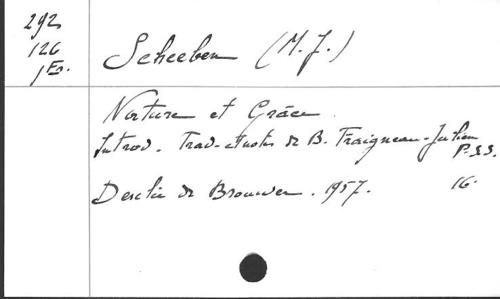 292
126
1 Es.
Scheeben (M. J.)
Nature et Grâce
Introd. Trad. et notes de B. Fraigneau-Julien
P.S.S.
Desclée de Brouwer. 1957. 16.